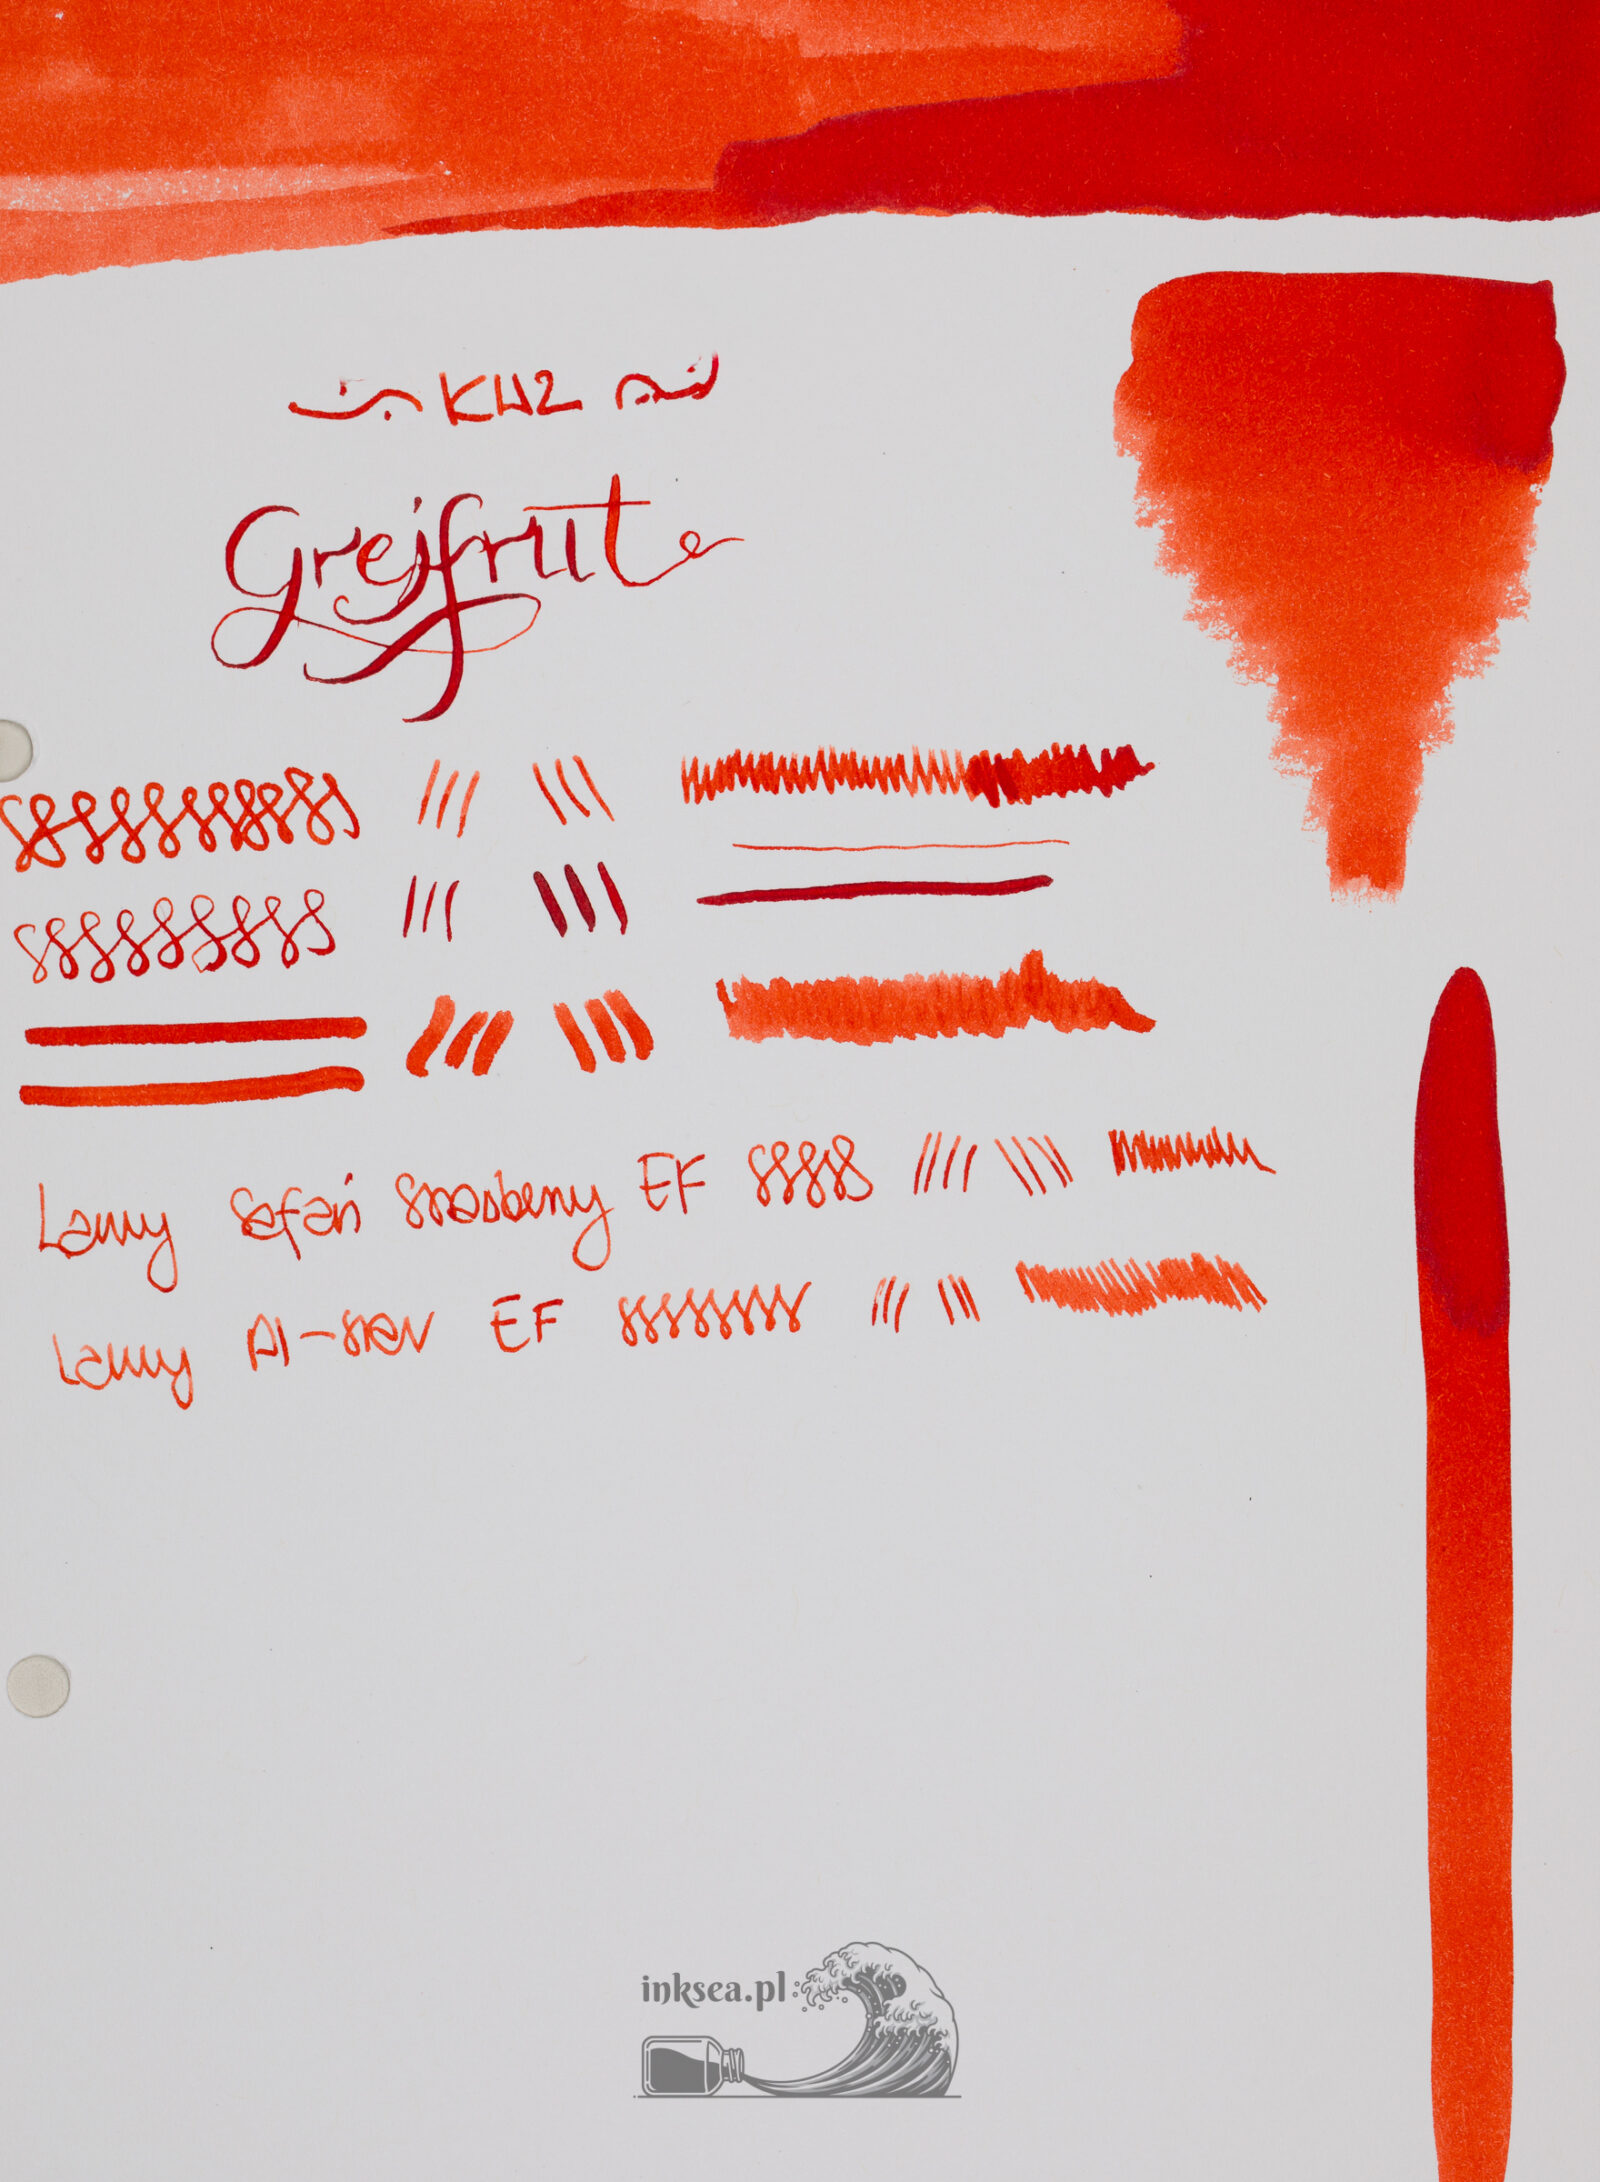 KWZ
Grejfrut
Lamy Safari EF
Lamy Al-star EF
inksea.pl